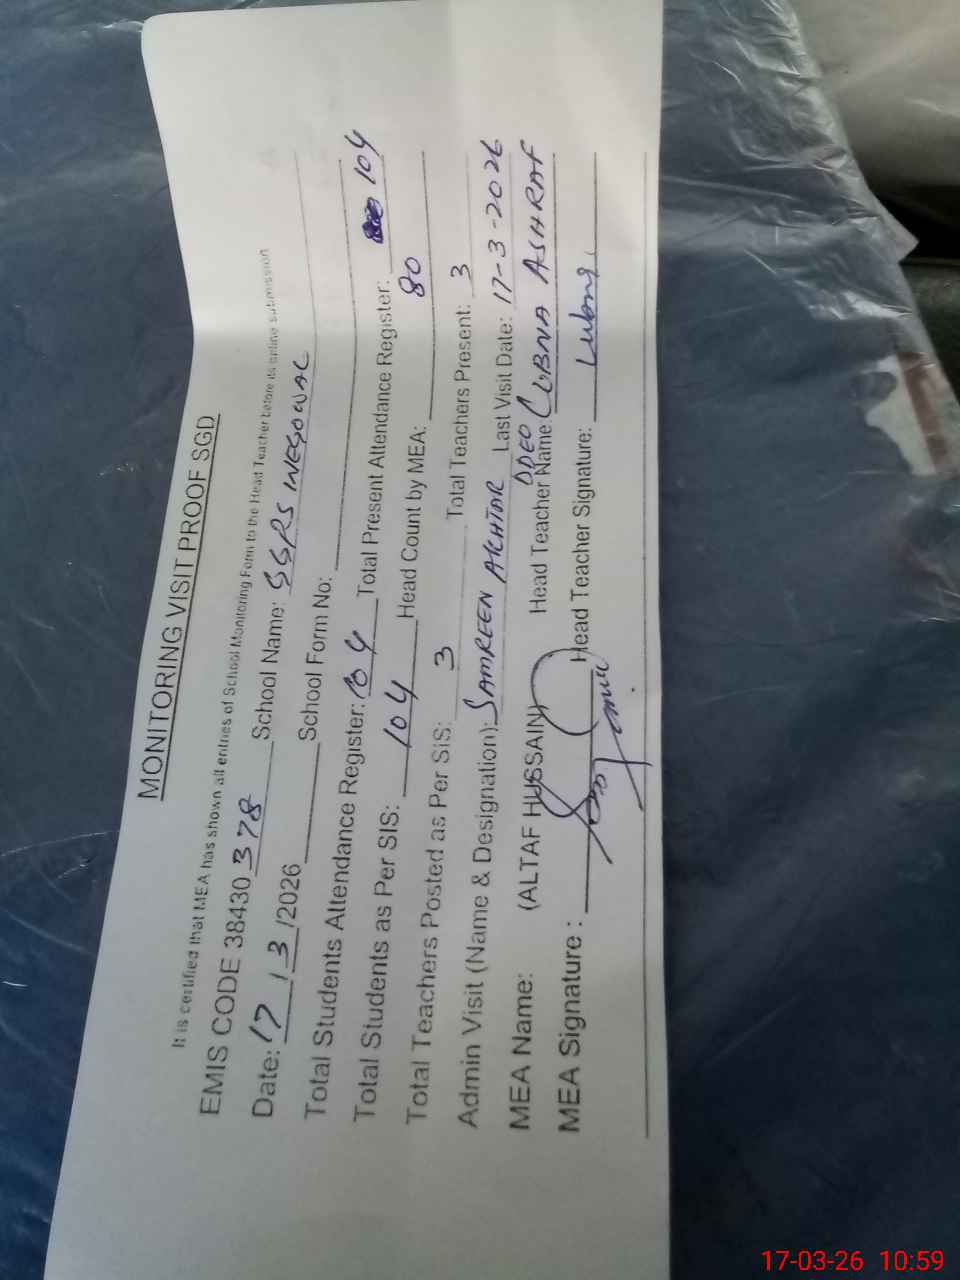 MONITORING VISIT PROOF SGD
It is certified that MEA has shown all entries of School Monitoring Form to the Head Teacher before its online submission
EMIS CODE 38430 378 School Name: GGPS INEGOWAL
Date: 17/3/2026 School Form No:
Total Students Attendance Register: 104 Total Present Attendance Register: 104
Total Students as Per SIS: 104 Head Count by MEA: 80
Total Teachers Posted as Per SIS: 3 Total Teachers Present: 3
Admin Visit (Name & Designation): SAMREEN AKHTAR Last Visit Date: 17-3-2026
DDEO
MEA Name: (ALTAF HUSSAIN) Head Teacher Name: LUBNA ASHRAF
MEA Signature: Head Teacher Signature: Lubna
17-03-26 10:59